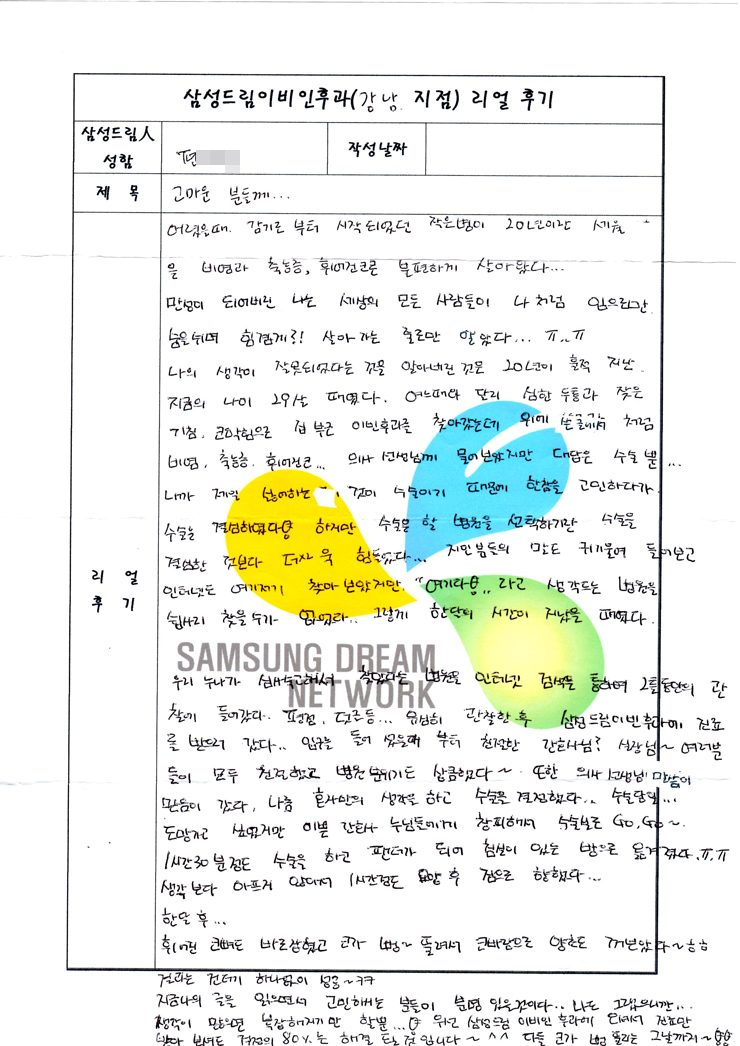 삼성드림이비인후과(강남 지점) 리얼 후기
삼성드림人 성함
편
작성날짜
제 목
고마운 분들께...
리 얼 후 기
어렸을때. 감기로 부터 시작되었던 작은병이 20년이란 세월
을 비염과 축농증, 휘어진코로 불편하게 살아왔다...
만성이 되어버린 나는 세상의 모든 사람들이 나처럼 입으로만
숨을쉬며 힘겹게?! 살아가는 줄로만 알았다... ㅠ.ㅠ
나의 생각이 잘못되었다는 것을 알아버린 것은 20년이 훌쩍 지난.
지금의 나이 29살 때였다. 여느때와 달리 심한 두통과 잦은
기침, 코막힘으로 집 부근 이빈후과를 찾아갔는데 위에 처럼
비염, 축농증, 휘어진코... 의사 선생님께 물어보았지만 대답은 수술 뿐...
내가 제일 싫어하는 것이 수술이기 때문에 한참을 고민하다가
수술을 결심하였다 하지만 수술을 할 병원을 선택하기란 수술을
결심한 것보다 더 욱 힘들었다... 지인분들의 말도 귀기울여 들어보고
인터넷도 여기저기 찾아보았지만, "여기다" 라고 생각드는 병원을
쉽사리 찾을수가 없었다.. 그렇게 한달의 시간이 지났을 때였다.
SAMSUNG DREAM
NETWORK
우리 누나가 해서 찾았다는 병원을 인터넷 검색을 통하여 2틀동안의 관
찰에 들어갔다. 평점, 등... 유심히 관찰한후 삼성드림이빈후과에 진료
를 받으러 갔다.. 입구를 들어 섰을때 부터 친절한 간호사님? 실장님~ 여러분
들이 모두 친절했고 병원분위기도 상큼했다~ 또한 의사 선생님 말씀에
믿음이 갔다, 나름 혼자만의 생각을 하고 수술을 결정했다.. 수술당일...
도망가고 싶었지만 이쁜 간호사 누님들에게 창피해서 수술실로 Go, Go~
1시간30분정도 수술을 하고 팬더가 되어 침실이 있는 방으로 옮겨졌다.ㅠ.ㅠ
생각보다 아프지 않아서 1시간정도 요양 후 집으로 향했다...
한달 후...
휘어진 코뼈도 바로잡혔고 코가 뻥~ 뚫려서 콧바람으로 양초도 꺼보았다~ㅎㅎ
결과는 건더기 하나없이 성공~ㅋㅋ
지금 나의 글을 읽으면서 고민하시는 분들이 분명 있을것이다.. 나도 그랬으니깐...
생각이 많으면 복잡해지기만 할뿐... 우선 삼성드림 이비인 후과에 와서 진료만
받아 보셔도 걱정의 80%는 해결 될 것 입니다~ ^^ 다들 코가 뻥 뚫리는 그날까지~